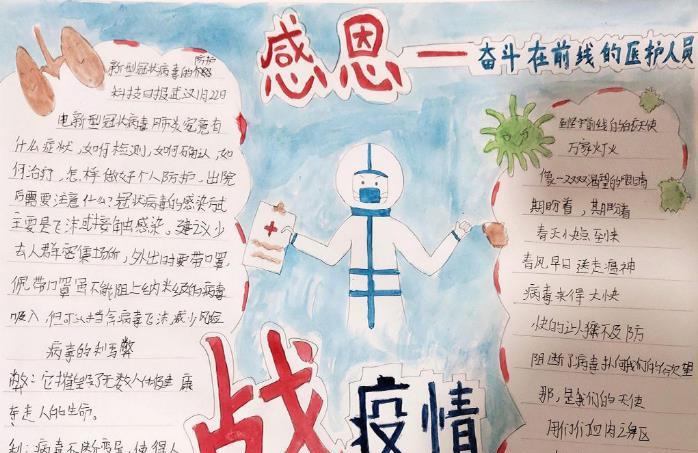 感恩一奋斗在前线的医护人员
新型冠状病毒的防护
科技日报武汉1月22日
电新型冠状病毒肺炎究竟有
什么症状,如何检测,如何确认,如
何治疗,怎样做好个人防护,出院
后需要注意什么?冠状病毒的感染方式
主要是飞沫或接触感染。建议少
去人群密集场所,外出时要带口罩,
佩带口罩虽不能阻止纳米级的病毒
吸入,但可以挡含病毒飞沫,减少风险
病毒的利与弊
弊:它摧毁了无数人体健康
夺走人的生命。
利:病毒不断变异,使得人
白衣天使
万家灯火
像一双双渴望的眼睛
期盼着,期盼着
春天小点到来
春风早日送走瘟神
病毒来得太快
快的让人猝不及防
阻断了病毒扑向我们的
那,是我们的天使
用们血肉之躯
战疫情